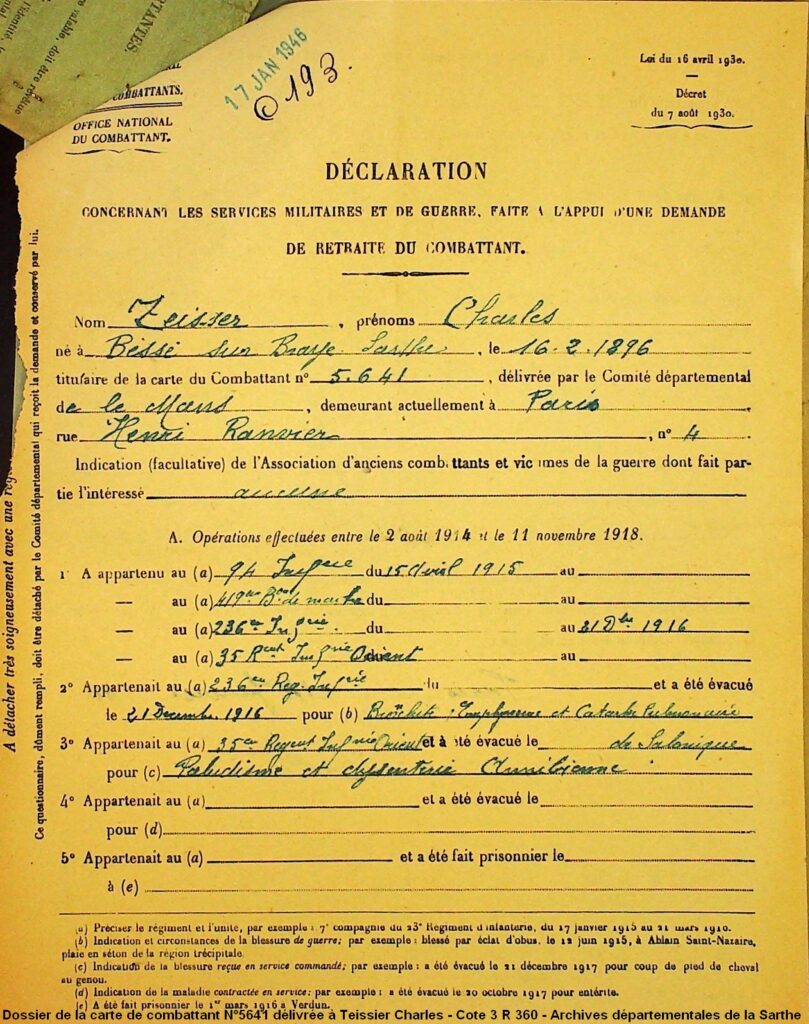 PTANTES.
COMBATTANTS.
OFFICE NATIONAL
DU COMBATTANT.
17 JAN 1946
193.
Loi du 16 avril 1930.
Décret
du 7 août 1930.
DÉCLARATION
CONCERNANT LES SERVICES MILITAIRES ET DE GUERRE, FAITE A L'APPUI D'UNE DEMANDE
DE RETRAITE DU COMBATTANT.
Nom Teisser, prénoms Charles
né à Béssé sur Braye Sarthe, le 16-2-1896
titulaire de la carte du Combattant n° 5.641, délivrée par le Comité départemental
de le Mans, demeurant actuellement à Paris
rue Henri Ranvier, n° 4.
Indication (facultative) de l'Association d'anciens combattants et victimes de la guerre dont fait par-
tie l'intéressé aucune
A. Opérations effectuées entre le 2 août 1914 et le 11 novembre 1918.
1° A appartenu au (a) 94 du 15 Avril 1915 au
— au (a) 419 de marche du au
— au (a) 236 du au 21 Dbre 1916
— au (a) 35 Orient au
2° Appartenait au (a) 236 Reg. du et a été évacué
le 21 Decembre 1916 pour (b) Emphyseme et Catarhe Pulmonaire
3° Appartenait au (a) 35 Orient et a été évacué le de Salonique
pour (c) Paludisme et dysenterie Amibienne
4° Appartenait au (a) et a été évacué le
pour (d)
5° Appartenait au (a) et a été fait prisonnier le
à (e)
(a) Préciser le régiment et l'unité, par exemple : 7e compagnie du 23e Régiment d'infanterie, du 17 janvier 1915 au 21 mars 1916.
(b) Indication et circonstances de la blessure de guerre; par exemple : blessé par éclat d'obus, le 12 juin 1915, à Ablain Saint-Nazaire,
plaie en séton de la région tricipitale.
(c) Indication de la blessure reçue en service commandé; par exemple : a été évacué le 21 décembre 1917 pour coup de pied de cheval
au genou.
(d) Indication de la maladie contractée en service; par exemple : a été évacué le 20 octobre 1917 pour entérite.
(e) A été fait prisonnier le 1er mars 1916 à Verdun.
A détacher très soigneusement avec une
Ce questionnaire, dûment rempli, doit être détaché par le Comité départemental qui reçoit la demande et conservé par lui.
Dossier de la carte de combattant N°5641 délivrée à Teissier Charles - Cote 3 R 360 - Archives départementales de la Sarthe